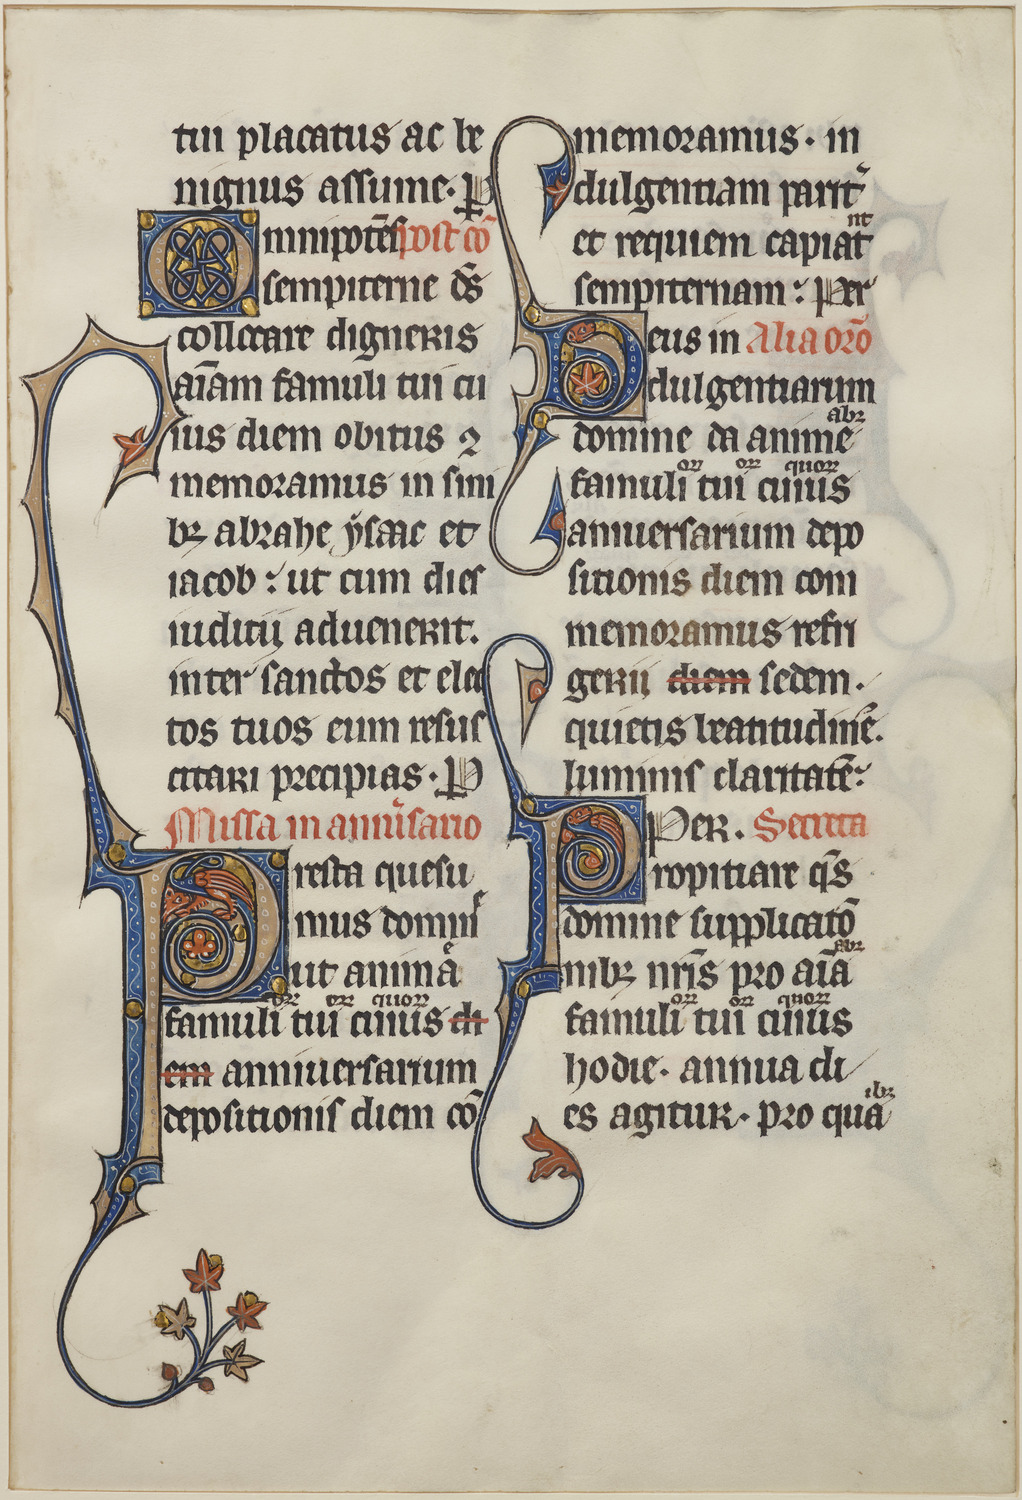 tui placatus ac be
nignus assume. P
mnipotēs post cō
sempiterne ds̄
collocare digneris
aīam famuli tui cu
ius diem obitus 9
memoramus in sini
bꝫ abrahe ysaac et
iacob : ut cum dies
iudicij aduenerit.
inter sanctos et elec
tos tuos eum resus
citari precipias. P
Missa in anniu̓sario
resta quesu
mus domin̓
ut animā
famuli tui cuius di
em anniuersarium
depositionis diem cō
memoramus. in
dulgentiam parit̓
et requiem capiat
nt
sempiternam : Per
eus in Alia orō
dulgentiarum
abꝫ
domine da anime
oꝝ oꝝ quoꝝ
famuli tui cuius
anniuersarium depo
sitionis diem com
memoramus refri
gerii diem sedem.
quietis beatitudinē.
luminis claritatē:
Per. Secreta
ropitiare qs̄
domine supplicatō
abꝫ
nibꝫ nr̄is pro aīa
oꝝ oꝝ quoꝝ
famuli tui cuius
hodie. annua di
es agitur. pro qua
ibꝫ